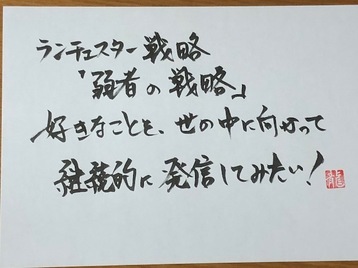 ランチェスター戦略
「弱者の戦略」
好きなことを、世の中に向かって
継続的に発信してみたい!